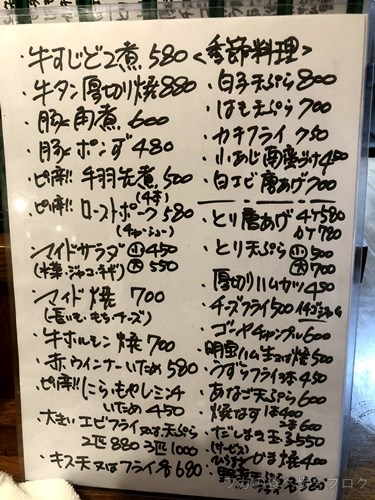 ・牛すじどて煮 580
・牛タン厚切り焼 880
・豚角煮 600
・豚ポンず 480
・ピ席!! 手羽先煮 500
(4本)
・ピ席!! ローストポーク 580
(チャーシュー)
マイドサラダ 小 450
(水菜・ジャコ・チーズ) 大 550
マイド焼 700
(長いも・もちチーズ)
・牛ホルモン焼 700
・赤ウインナーいため 580
・ピ席!! にら・もやし・ミンチ
いため 450
・大きいエビフライ又は天ぷら
2匹 880 3匹 1000
・キス天又はフライ 680
<季節料理>
・白子天ぷら 800
・はも天ぷら 700
・カキフライ 750
・小あじ南蛮づけ 450
・白エビ唐あげ 700
・とり唐あげ 4ケ 580
6ケ 780
・とり天ぷら 小 500
大 700
・厚切りハムカツ 450
・チーズフライ 500
・ゴーヤチャンプル 600
・明宝ハム生又は焼 500
・うずらフライ 450
・あなご天ぷら 600
・焼なす 1本 400
2本 600
・だしまき玉子 550
(サービス)
かま焼 400